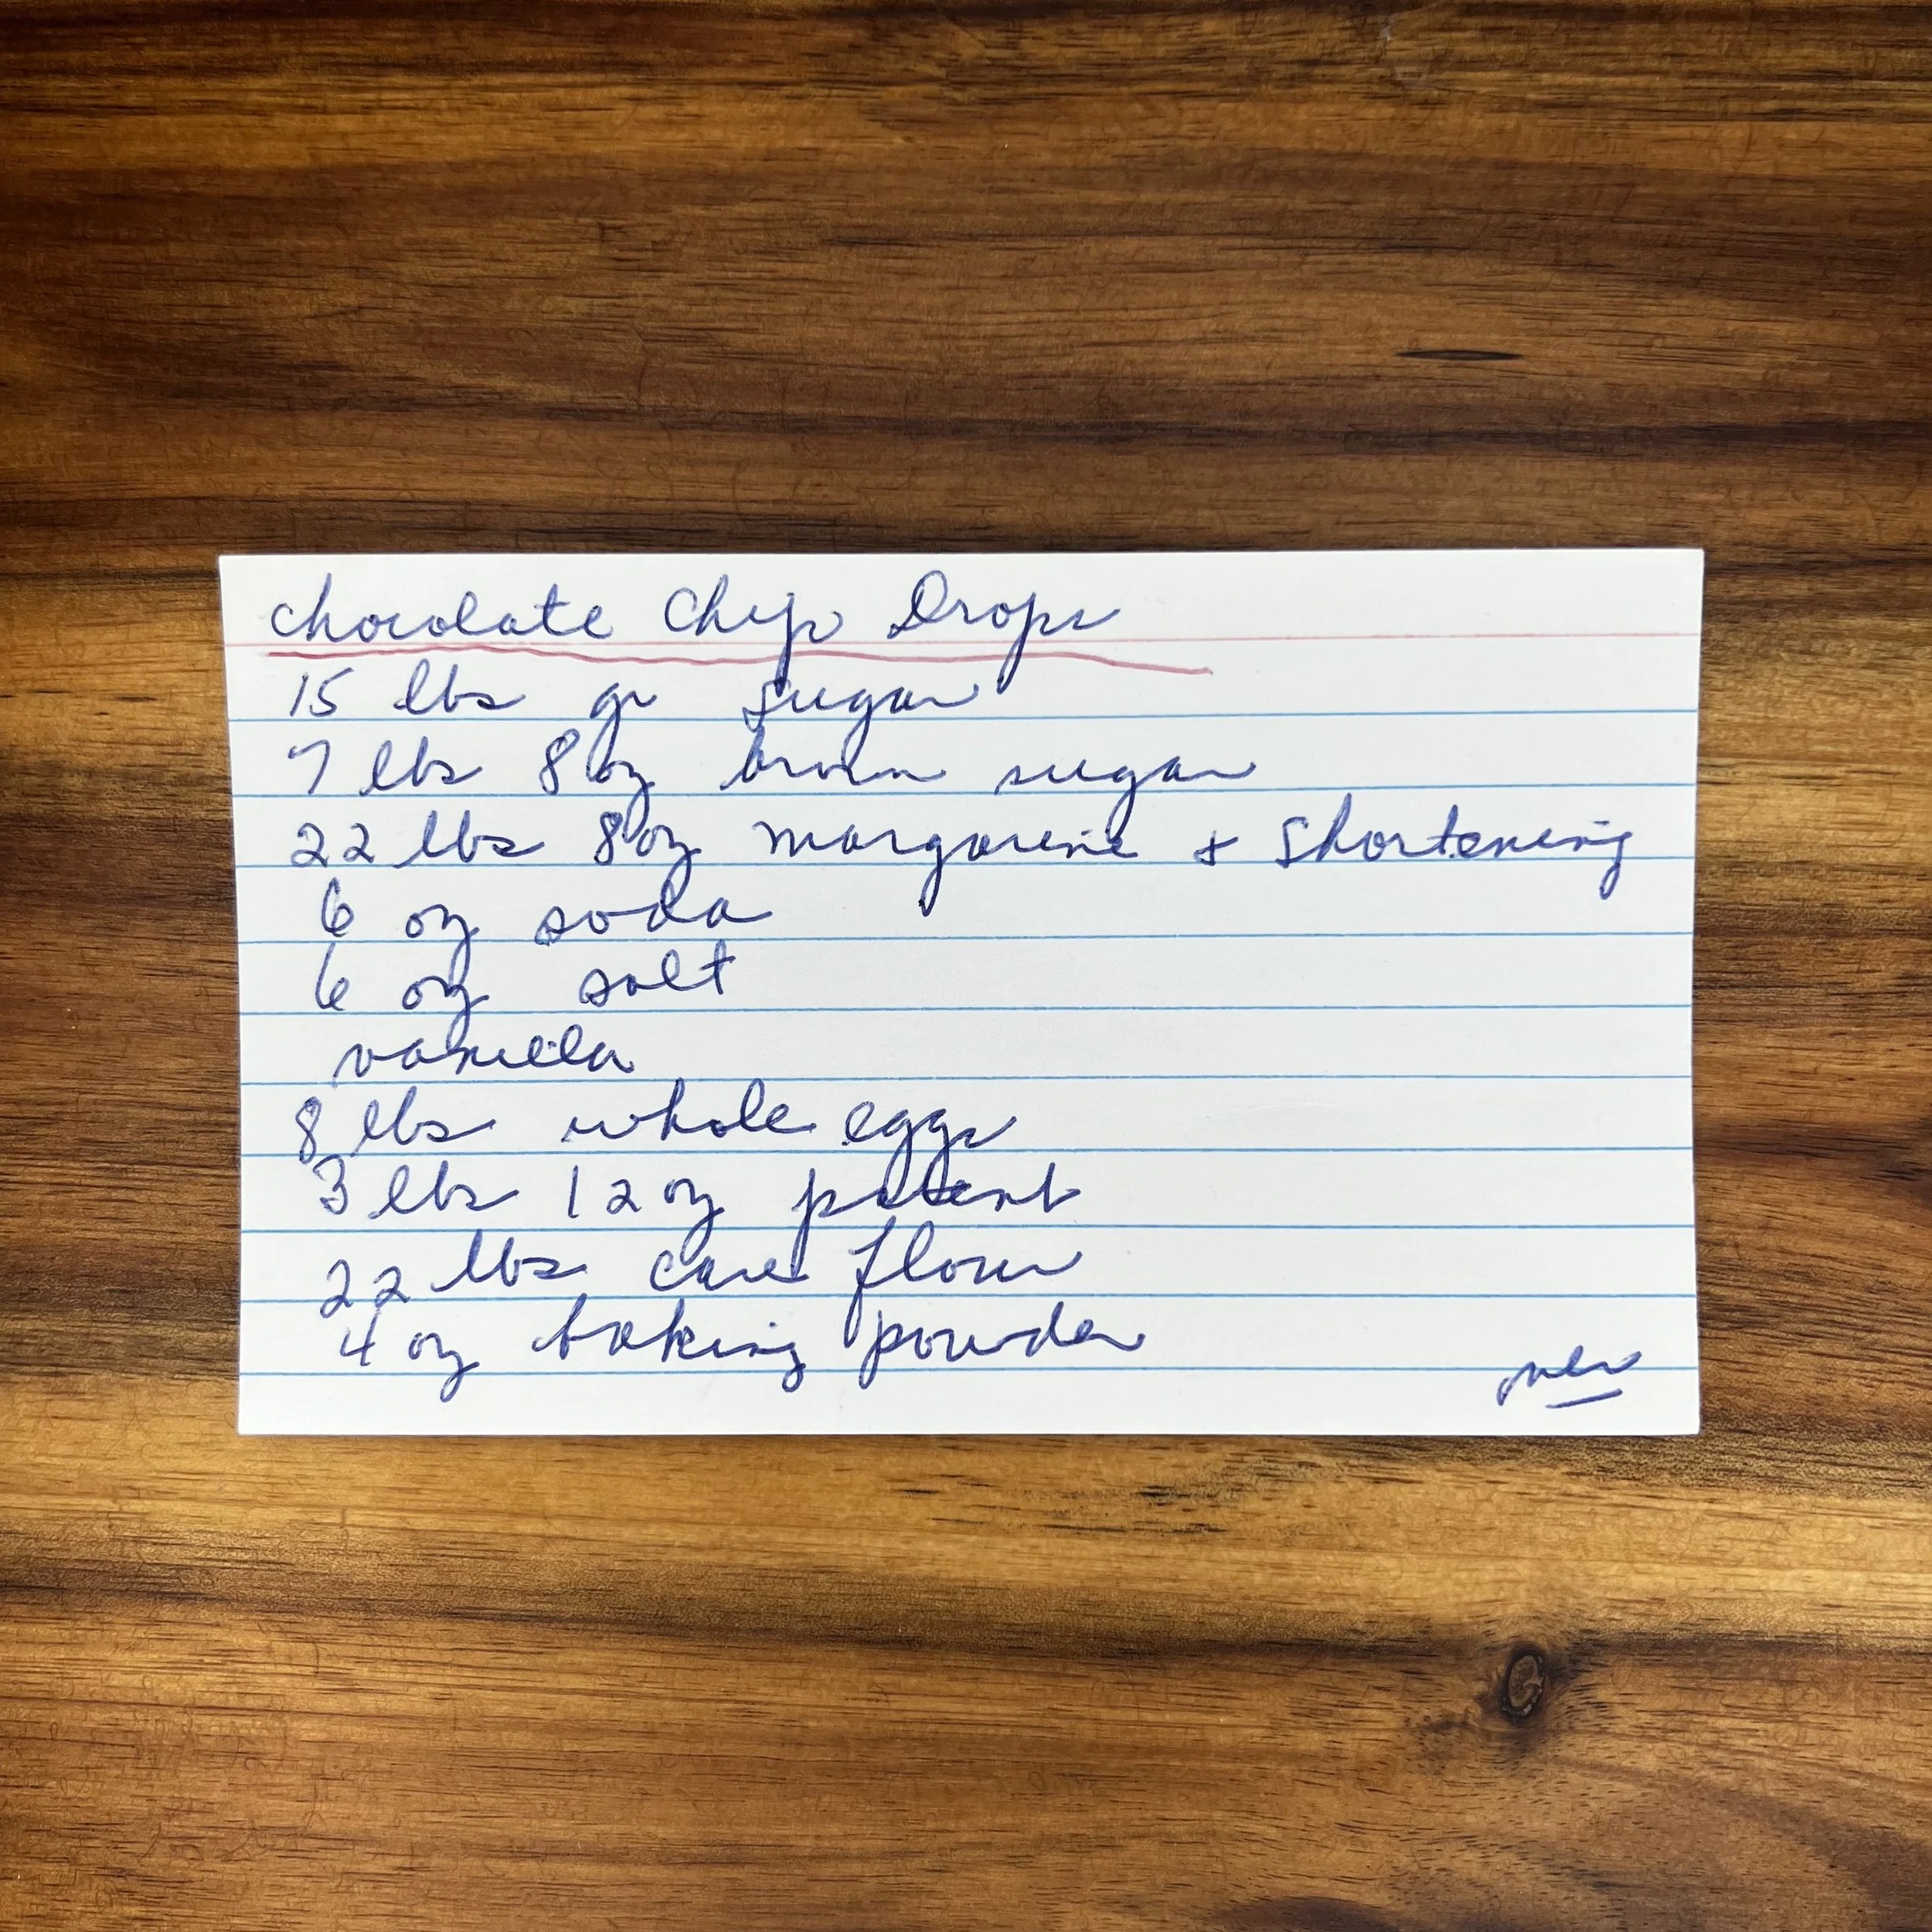 Chocolate Chip Drops
15 lbs gr sugar
7 lbs 8 oz brown sugar
22 lbs 8 oz margarine + Shortening
6 oz soda
6 oz salt
vanilla
8 lbs whole eggs
3 lbs 12 oz patent
22 lbs cake flour
4 oz baking powder
over